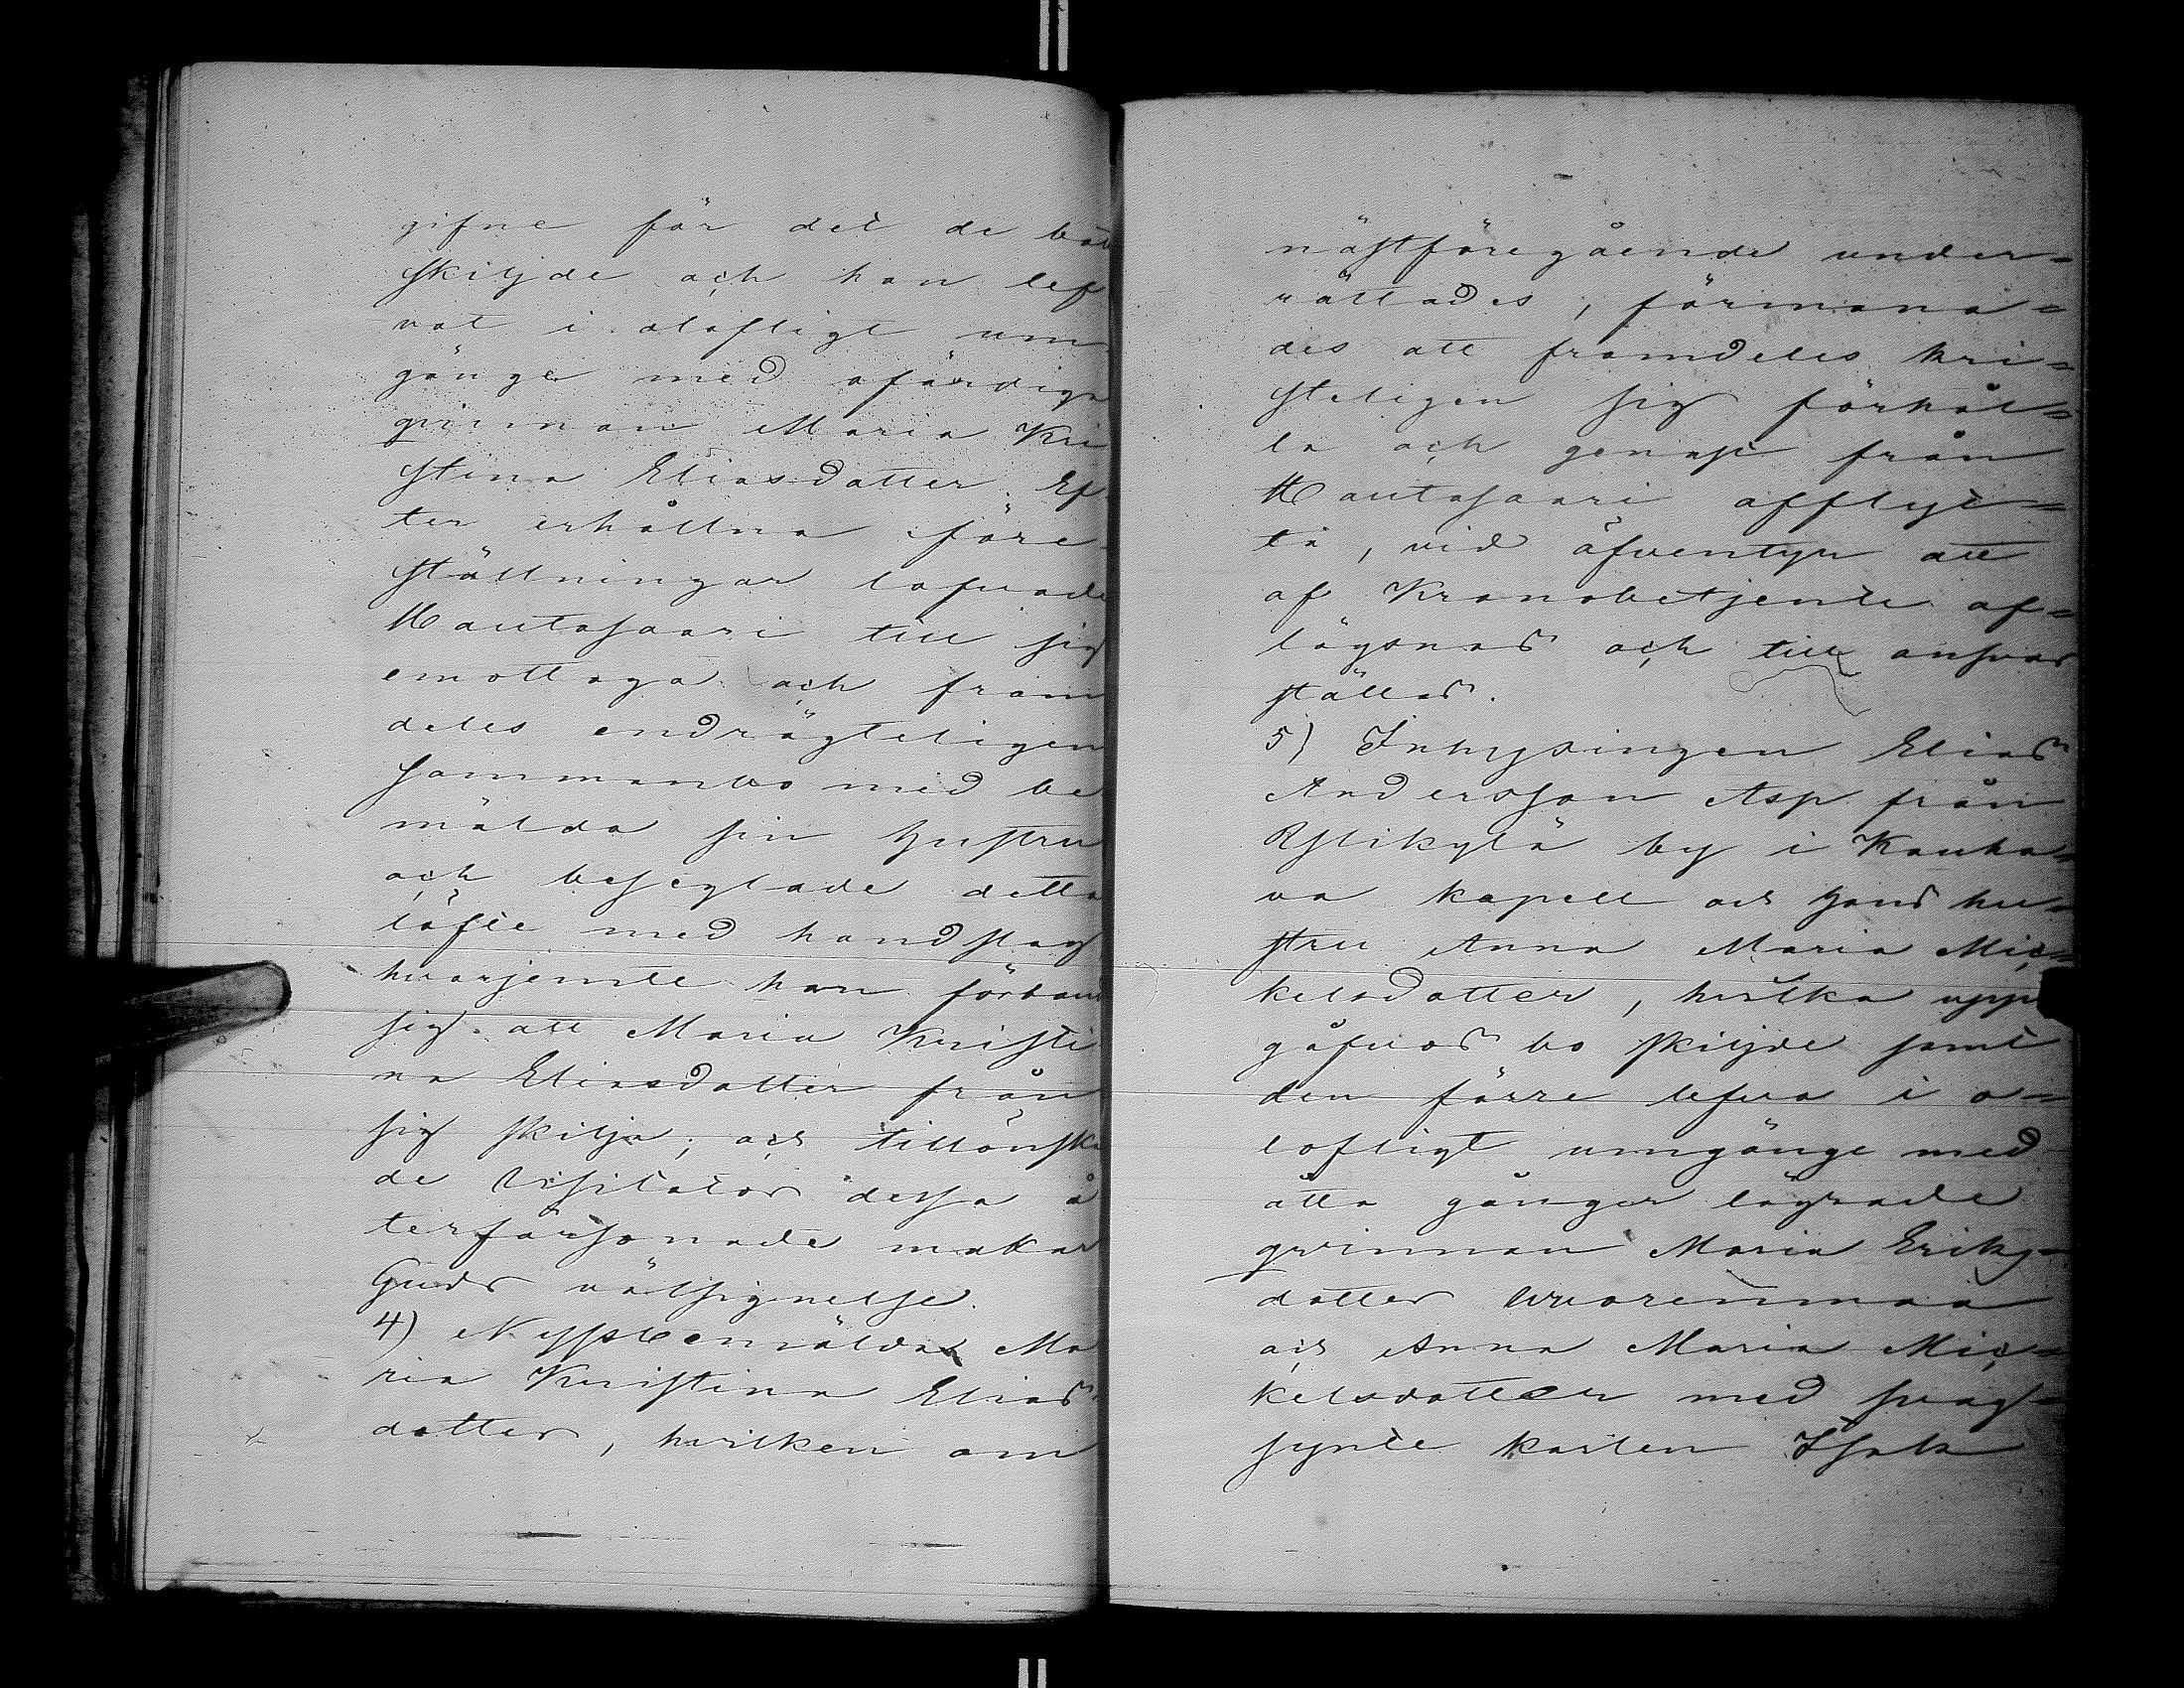 gifne för det de bott
skiljde och han lef
vat i olofligt um
gänge med ofärdiga
qvinnan Maria Kri
stina Eliasdotter. Ef
ter erhållna före
ställningar lofvade
Hautasaari till sig
emottaga och fram
deles endrägteligen
sammanbo med be
mälda sin hustru
och beseglade detta
löfte med handslag
hvarjemte han förband
sig att Maria Kristi
na Eliasdotter från
sig skilja; och tillönska
de Visitator dessa å
terförsonade makar
Guds välsignelse.
4) Nyssbemälda Ma
ria Kristina Elias
dotter, hvilken om
nästföregående under=
rättades, förmana=
des att framdeles kri=
steligen sig förhål=
la och genast från
Hautasaari afflyt=
ta, vid äfventyr att
af Kronobetjente af=
lägsnas och till ansvar
ställas.
5) Inhysingen Elias
Andersson Asp från
Ylikylä by i Kauha=
va kapell och hans hu=
stru Anna Maria Mic=
kelsdotter, hvilka upp
gåfvos bo skiljde samt
den förre lefva i o=
lofligt umgänge med
åtta gånger lägrade
qvinnan Maria Eriks=
dotter Wuorenmaa
och Anna Maria Mic=
kelsdotter med svag=
synte karlen Isak